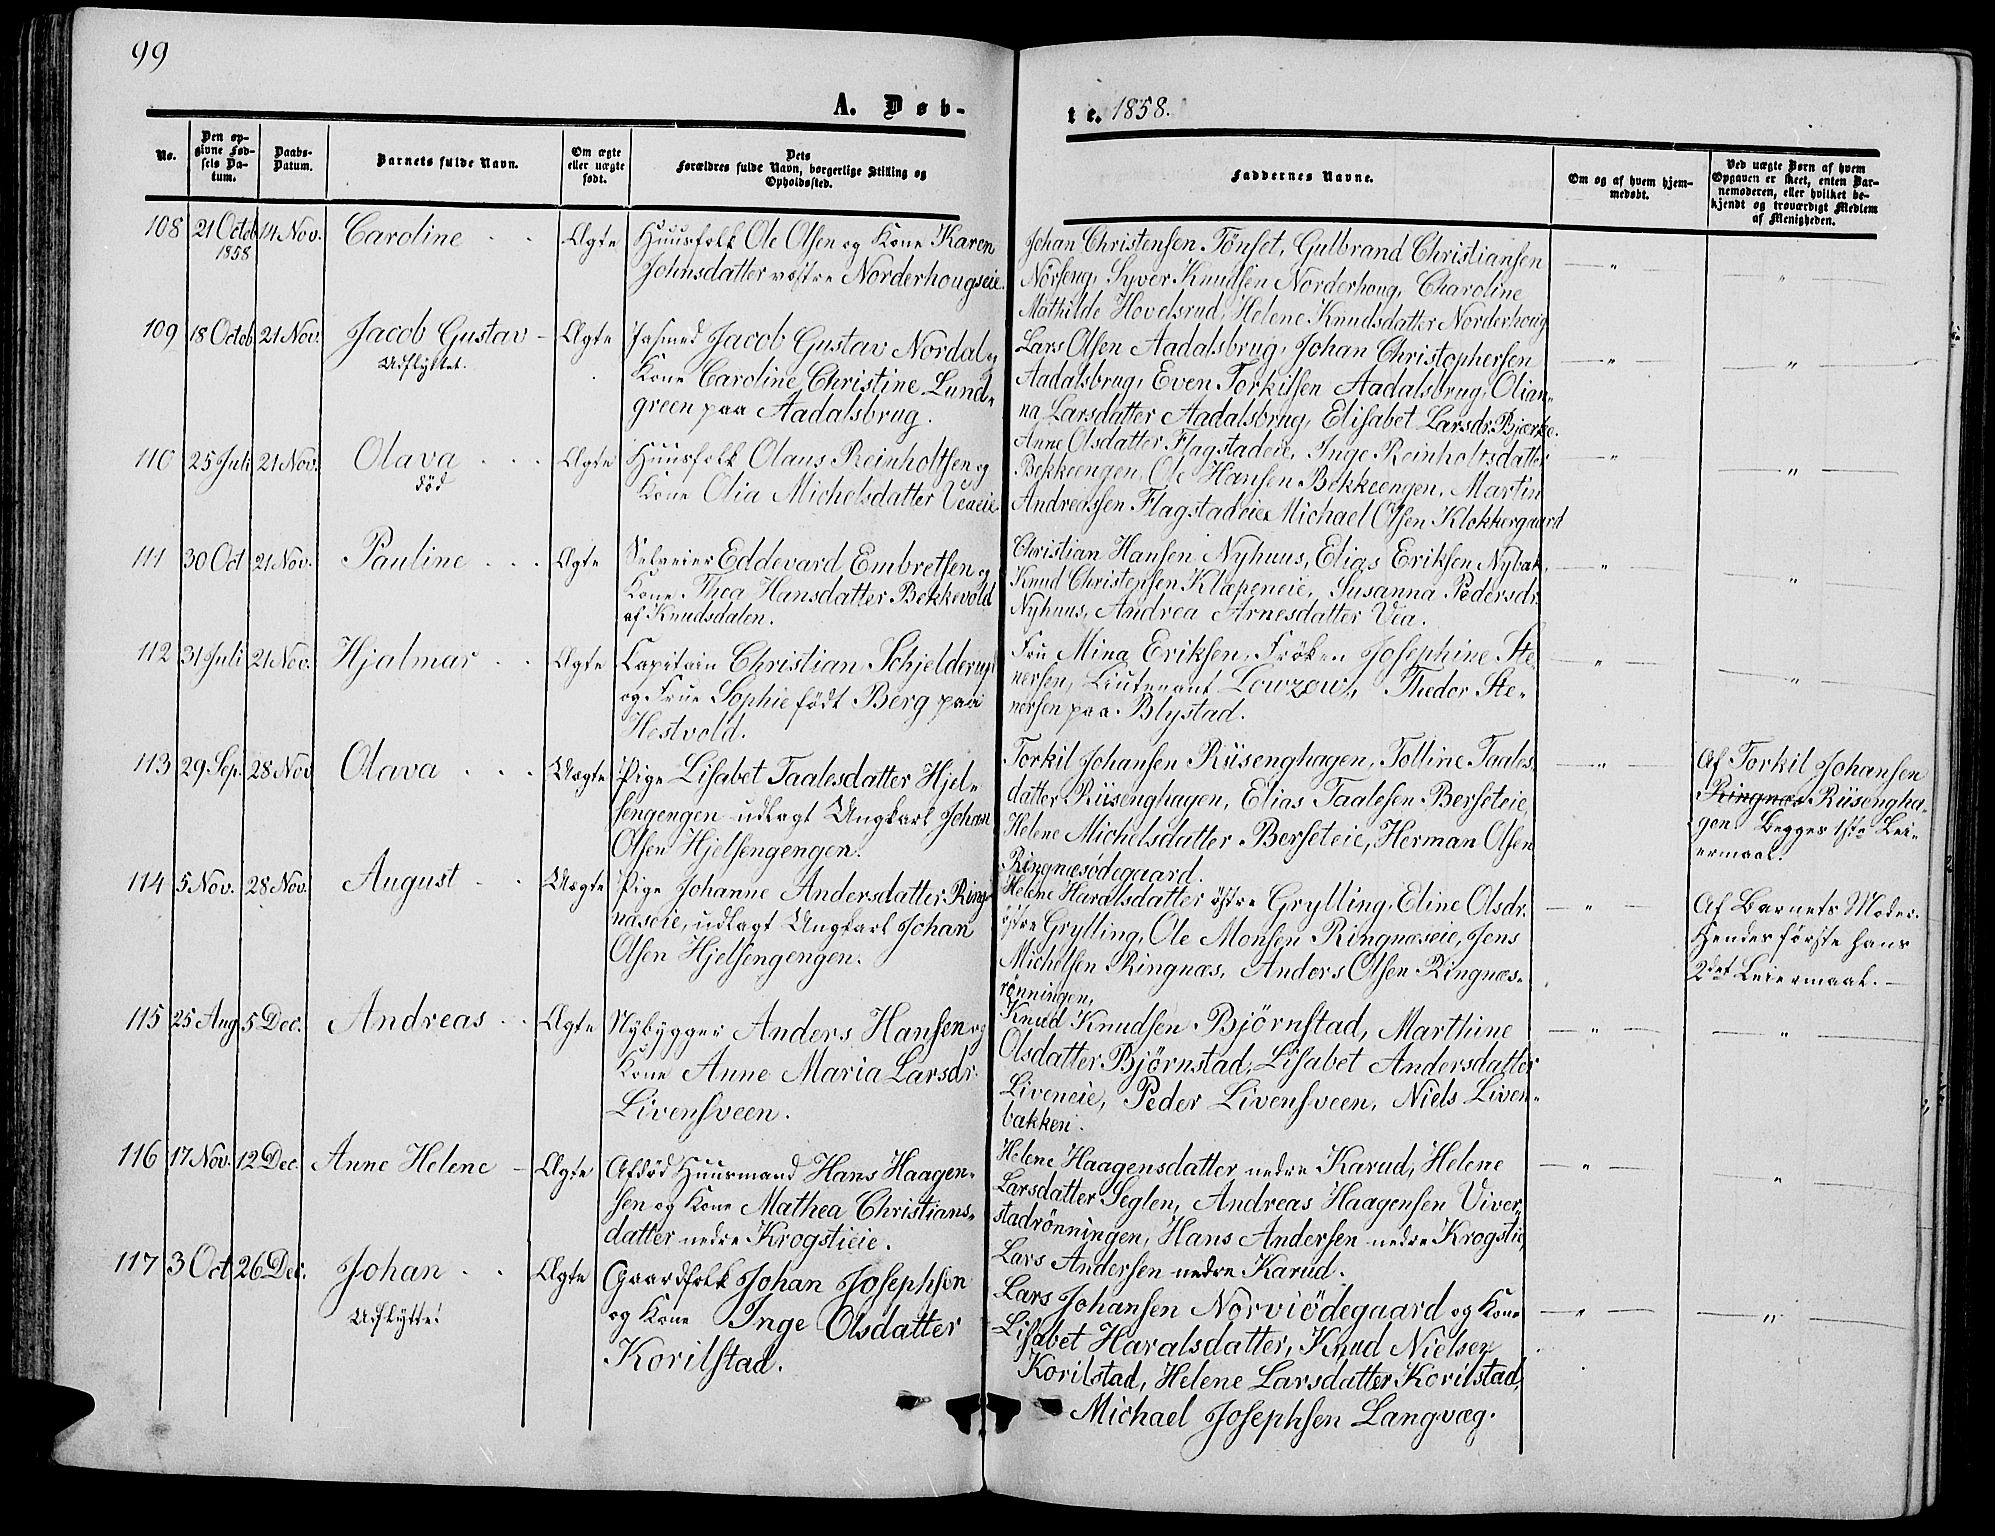 99
A. Døb-
te. 1858.
No.
Den op-
givne Fød-
sels Da-
tum.
Daabs-
Datum.
Barnets fulde Navn.
Om ægte
eller uægte
født.
Dets
Forældres fulde Navn, borgerlige Stilling og
Opholdssted.
Faddernes Navne.
Om og af hvem hjem-
medøbt.
Ved uægte Børn af hvem
Opgaven er skeet, enten Bar-
nemoderen, eller hvilket be-
kjendt og troværdigt Medlem
af Menigheden.
108 21 Octob 14 Nov. Caroline Ægte Huusfolk Ole Olsen og Kone Karen
1858
Johnsdatter vestre Norderhougseie.
Johan Christensen Tönset, Gulbrand Christiansen
Nörseng, Syver Knudsen Norderhoug, Charoline
Mathilde Hovelsrud, Helene Knudsdatter Norderhoug
109 18 Octob 21 Nov. Jacob Gustav Ægte Jacob Gustav Nordal og
Udflyttet.
Kone Caroline Christine Lund-
green paa Aadalsbrug.
Lars Olsen Aadalsbrug, Johan Christophersen
Aadalsbrug, Even Torkilsen Aadalsbrug, Olian-
na Larsdatter Aadalsbrug, Elisabet Larsdr. Bjerke.
110 25 Juli 21 Nov. Olava Ægte Huusfolk Olaus Reinholtsen og
död
Kone Olia Michelsdatter Veneie
Anne Olsdatter Flagstadeie, Inge Reinholtsdatter
Bekkeengen, Ole Hansen Bekkeengen, Martin
Andreassen Flagstadeie Michael Olsen Klokkergaard
111 30 Oct 21 Nov. Pauline Ægte Selveier Eddevard Embretsen og
Kone Thea Hansdatter Bekkevold
af Knudsdalen.
Christian Hansen Nyhuus, Elias Eriksen Nybak,
Knud Christensen Klapeneie, Susanna Pedersdr.
Nyhuus, Andrea Arnesdatter Vea.
112 31 Juli 21 Nov. Hjalmar Ægte Capitain Christian Schjelderup
og Frue Sophie födt Berg paa
Hestvold.
Fru Mina Eriksen, Fröken Josephine Ste-
nersen, Lieutenant Lowzow, Thedor Ste-
nersen paa Blystad.
113 29 Sep. 28 Nov Olava Uægte Pige Lisabet Taalesdatter Hjel-
sengengen udlagt Ungkarl Johan
Olsen Hjelsengengen.
Torkil Johansen Rüsenghagen, Tolline Taales-
datter Rüsenghagen, Elias Taalesen Berseteie,
Helene Michelsdatter Berseteie, Herman Olsen
Ringnæsödegaard.
Af Torkil Johansen
Ringnæs Rüsengha-
gen. Begges 1ste Lei-
ermaal.
114 5 Nov. 28 Nov. August Uægte Pige Johanne Andersdatter Ring-
næseie, udlagt Ungkarl Johan
Olsen Hjelsengengen.
Helene Haralsdatter östre Grylling, Eline Olsdr.
östre Grylling, Ole Monsen Ringnæseie, Jens
Michelsen Ringnæs, Anders Olsen Ringnæs-
rönningen,
Af Barnets Moder.
Hendes förste hans
2det Leiermaal.
115 25 Aug. 5 Dec. Andreas Ægte Nybygger Anders Hansen og
Kone Anne Maria Larsdr.
Livensveen.
Knud Knudsen Björnstad, Marthine
Olsdatter Björnstad, Lisabet Andersdatter
Liveneie, Peder Livensveen, Niels Liven-
bakken.
116 17 Nov. 12 Dec. Anne Helene Ægte Afdöd Huusmand Hans Haagen-
sen og Kone Mathea Christians-
datter nedre Krogstieie.
Helene Haagensdatter nedre Karud, Helene
Larsdatter Seglen, Andreas Haagensen Viver-
stadrönningen, Hans Andersen nedre Krogstie,
Lars Andersen nedre Karud.
117 3 Oct. 26 Dec. Johan Ægte Gaardfolk Johan Josephsen
Udflytte!
og Kone Inge Olsdatter
Korilstad.
Lars Johansen Norviödegaard og Kone
Lisabet Haralsdatter, Knud Nielsen
Korilstad, Helene Larsdatter Korilstad,
Michael Josephsen Langvæg.